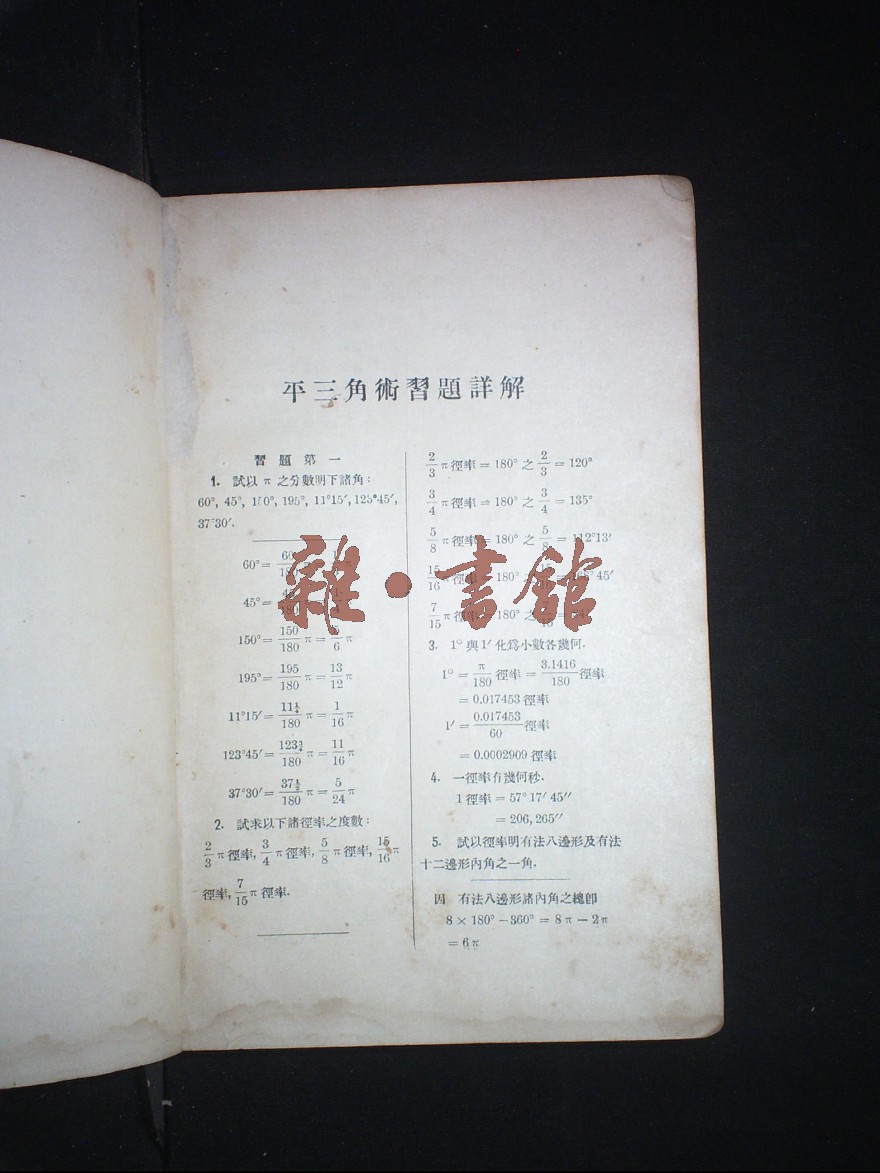 平三角術習題詳解
習題第一
1. 試以 π 之分數明下諸角:
60°, 45°, 150°, 195°, 11°15′, 123°45′,
37°30′.
60° = 60/
45° =
150° = 150/180 π = 5/6 π
195° = 195/180 π = 13/12 π
11°15′ = 11¼/180 π = 1/16 π
123°45′ = 123¾/180 π = 11/16 π
37°30′ = 37½/180 π = 5/24 π
2. 試求以下諸徑率之度數:
2/3 π 徑率, 3/4 π 徑率, 5/8 π 徑率, 15/16 π
徑率, 7/15 π 徑率.
2/3 π 徑率 = 180° 之 2/3 = 120°
3/4 π 徑率 = 180° 之 3/4 = 135°
5/8 π 徑率 = 180° 之 5/8 = 112°13′
15/16 徑率 = 180° 45′
7/15 π 徑率 = 180° 之
雜·書館
3. 1° 與 1′ 化爲小數各幾何.
1° = π/180 徑率 = 3.1416/180 徑率
= 0.017453 徑率
1′ = 0.017453/60 徑率
= 0.0002909 徑率
4. 一徑率有幾何秒.
1 徑率 = 57° 17′ 45″
= 206,265″
5. 試以徑率明有法八邊形及有法
十二邊形內角之一角.
因 有法八邊形諸內角之總卽
8 × 180° − 360° = 8π − 2π
= 6π